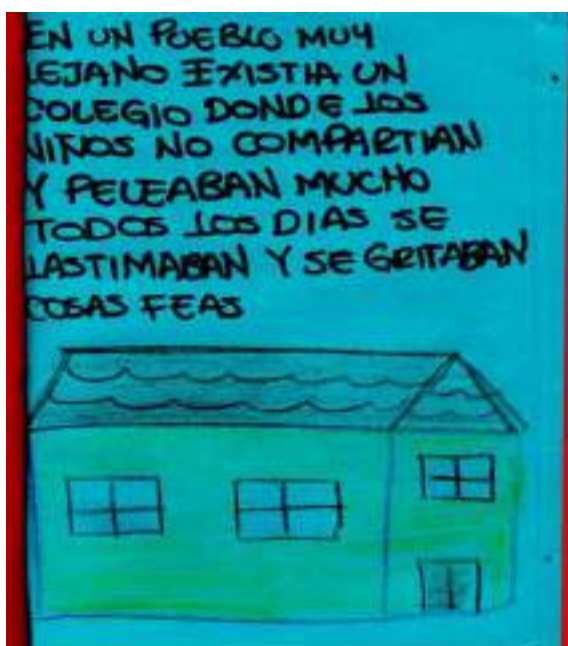 EN UN PUEBLO MUY
LEJANO EXISTIA UN
COLEGIO DONDE LOS
NIÑOS NO COMPARTIAN
Y PELEABAN MUCHO
TODOS LOS DIAS SE
LASTIMABAN Y SE GRITABAN
COSAS FEAS